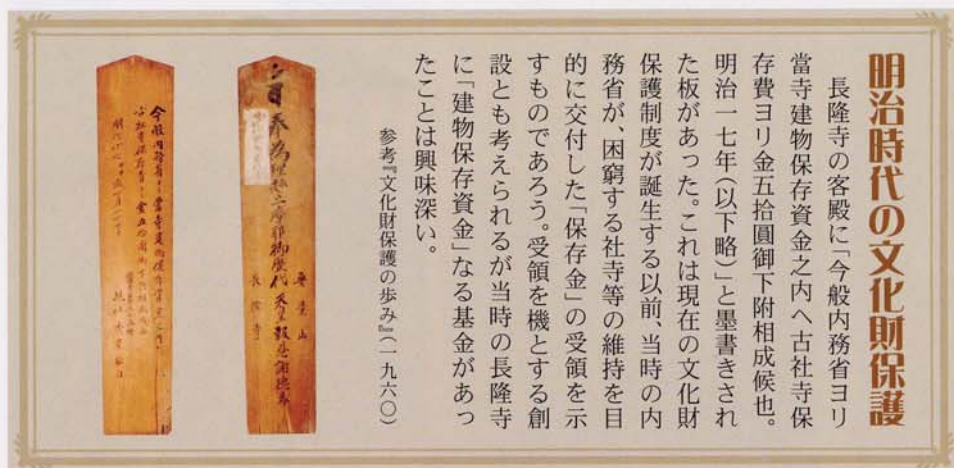 明治時代の文化財保護
長隆寺の客殿に「今般内務省ヨリ
當寺建物保存資金之内ヘ古社寺保
存費ヨリ金五拾圓御下附相成候也。
明治一七年(以下略)」と墨書きされ
た板があった。これは現在の文化財
保護制度が誕生する以前、当時の内
務省が、困窮する社寺等の維持を目
的に交付した「保存金」の受領を示
すものであろう。受領を機とする創
設とも考えられるが当時の長隆寺
に「建物保存資金」なる基金があっ
たことは興味深い。
参考『文化財保護の歩み』(一九六〇)
奉為理趣三摩耶御歴代天皇報恩謝徳
長隆寺
今般内務省ヨリ當寺建物保存資金之内